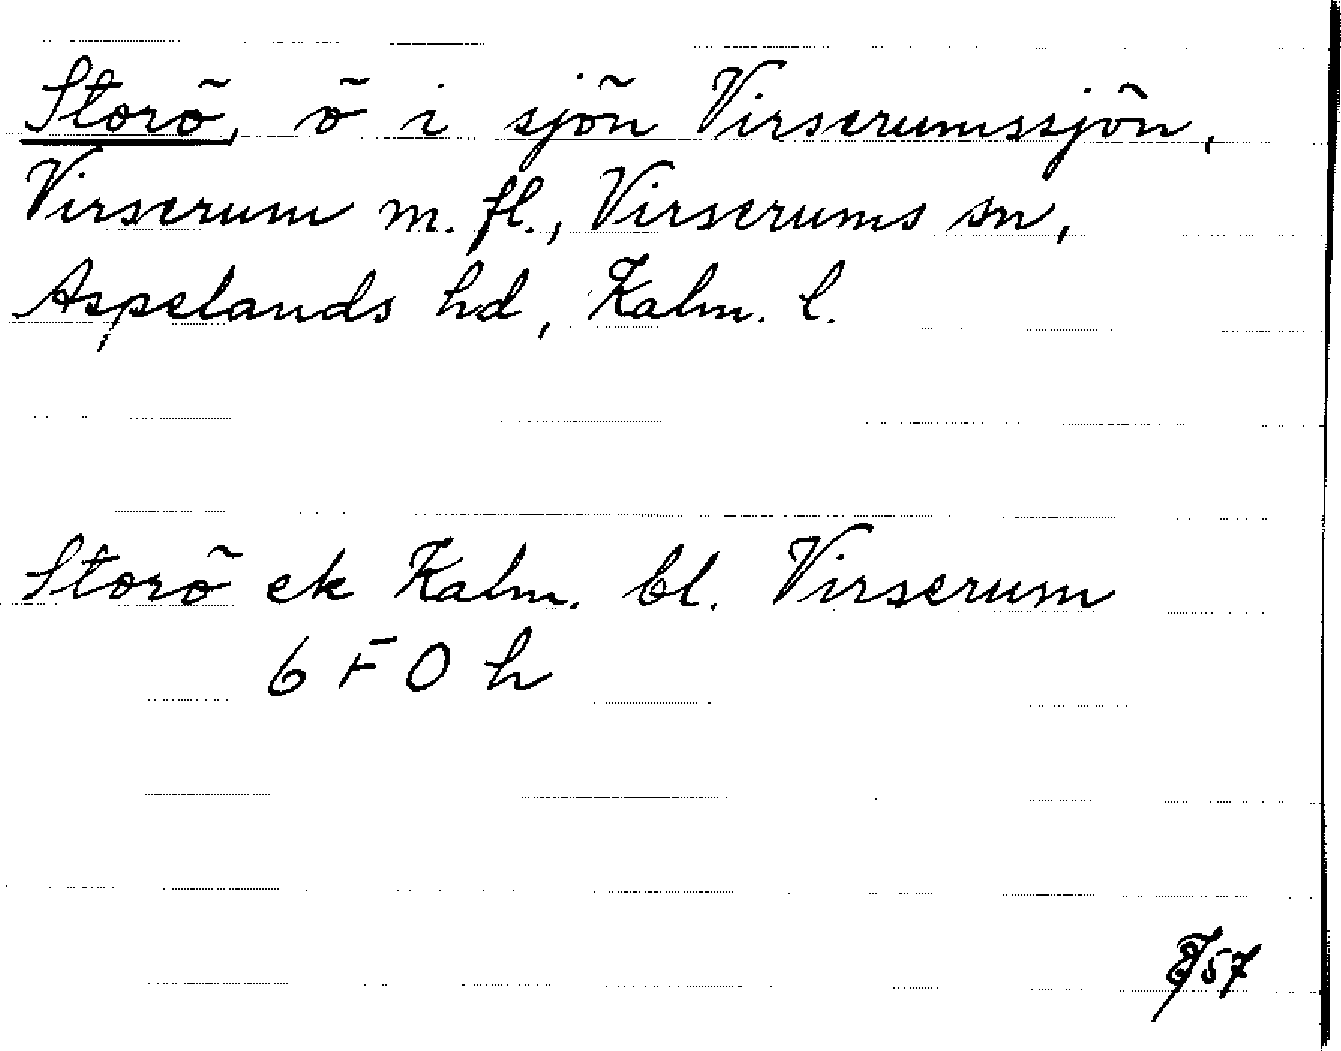 Storö, ö i sjön Virserumssjön,
Virserum m. fl., Virserums sn,
Aspelands hd, Kalm. l.
Storö ek Kalm. bl. Virserum
6 F O h
57